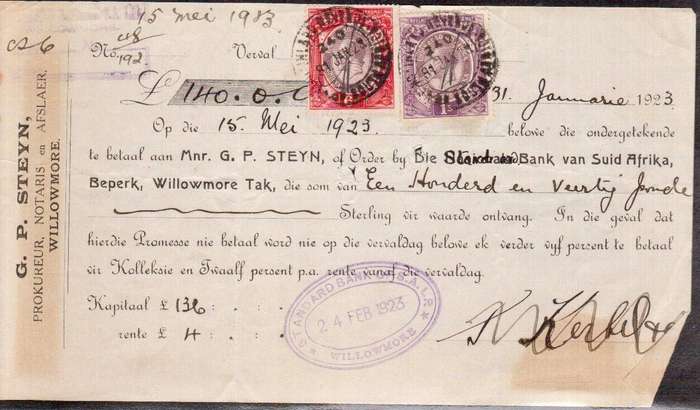 15 Mei 1923
No. 192 Verval
£ 140. 0. 0 31 Januarie 1923
Op die 15 Mei 1923 belowe die ondergetekende
te betaal aan Mnr. G. P. STEYN, of Order by Die Bank van Suid Afrika,
Beperk, Willowmore Tak, die som van Een Honderd en Veertig Ponde
Sterling vir waarde ontvang. In die geval dat
hierdie Promesse nie betaal word nie op die vervaldag belowe ek verder vyf persent te betaal
vir Kolleksie en Twaalf persent p.a. rente vanaf die vervaldag.
Kapitaal £ 136 : . :
rente £ 4 : . :
STANDARD BANK OF S.A. LTD
24 FEB 1923
WILLOWMORE
G. P. STEYN,
PROKUREUR, NOTARIS en AFSLAER,
WILLOWMORE.